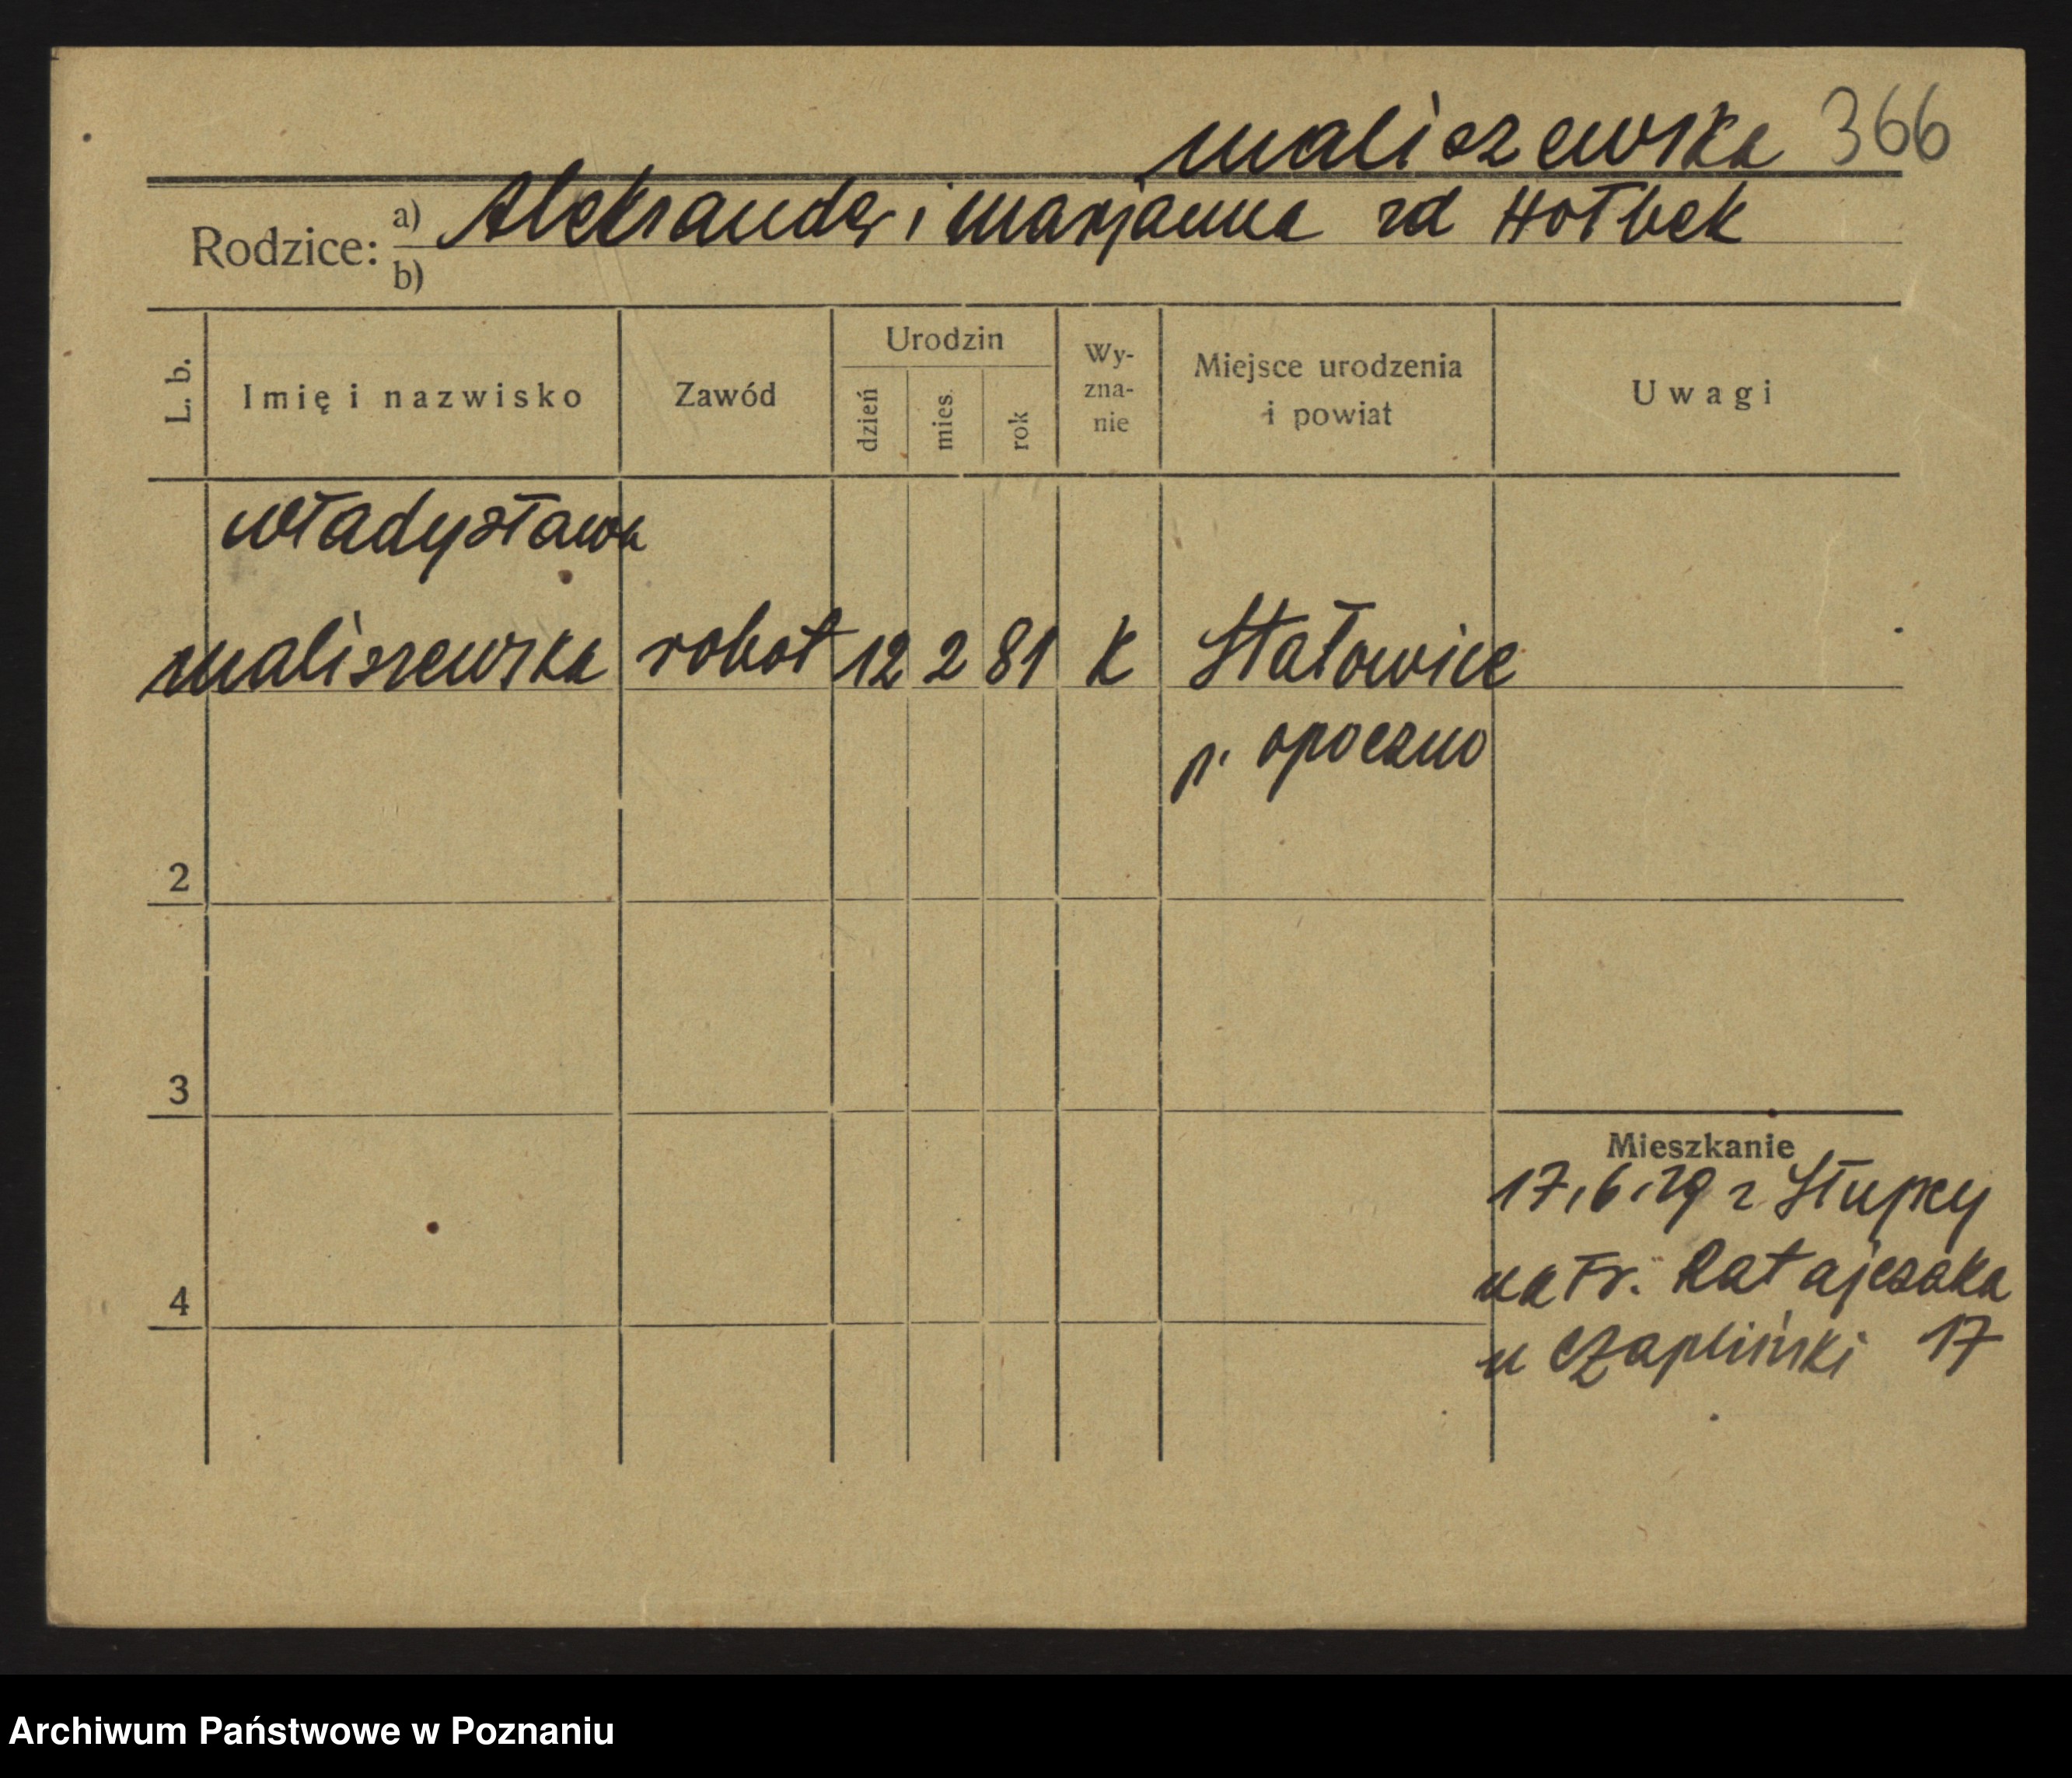 Maliszewska 366
Rodzice: a) Aleksander i Marjanna zd Hołbek
b)
L. b. Imię i nazwisko Zawód Urodzin dzień mies. rok Wy-zna-nie Miejsce urodzenia i powiat Uwagi
Władysława
Maliszewska robot 12 2 81 K Stałowice
p. Opoczno
2
3
Mieszkanie
17.6.29 z Słupcy
na Fr. Ratajczaka
4
u Czapliński 17
Archiwum Państwowe w Poznaniu